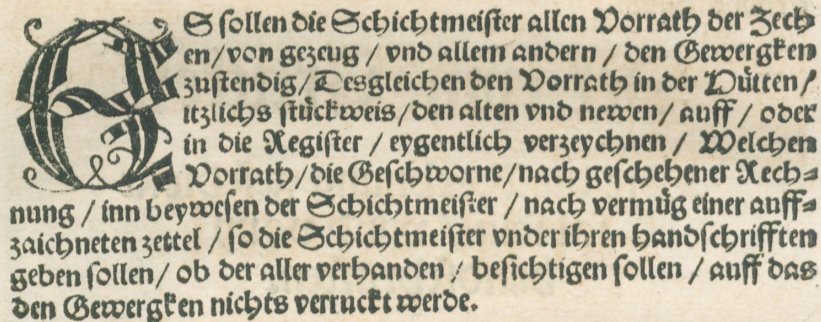 ES sollen die Schichtmeister allen Vorrath der Zech
en/von gezeug / vnd allem andern / den Gewergken
zustendig/Desgleichen den Vorrath in der Hütten/
itzlichs stückweis/den alten vnd newen/ auff / oder
in die Register / eygentlich verzeychnen / Welchen
Vorrath/die Geschworne/nach geschehener Rech-
nung / inn beywesen der Schichtmeister / nach vermüg einer auff-
zaichneten zettel / so die Schichtmeister vnder ihren handschrifften
geben sollen/ ob der aller verhanden / besichtigen sollen / auff das
den Gewergken nichts verruckt werde.